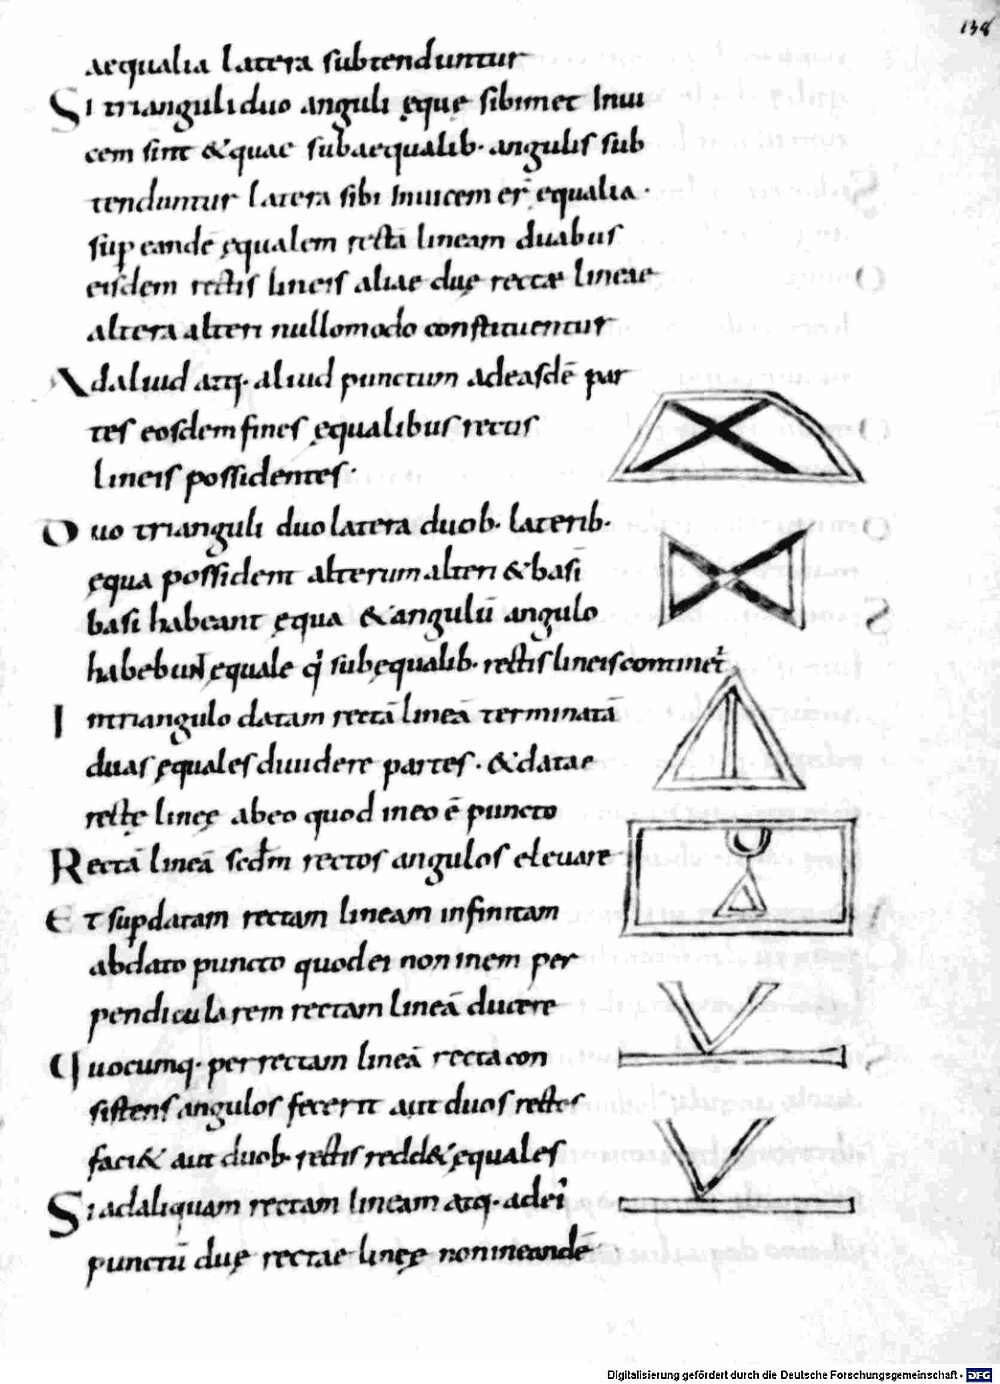 138
aequalia latera subtenduntur
Si trianguli duo anguli ęquę sibimet Inui
cem sint & quae sub aequalib· angulis sub
tenduntur latera sibi Inuicem er̄ ęqualia·
sup eandē ęqualem rectā lineam duabus
eisdem rectis lineis aliae duę rectae lineae
altera alteri nullomodo constituentur
Ad aliud atq· aliud punctum ad easdē par
tes eosdem fines ęqualibus rectis
lineis possidentes·
Duo trianguli duo latera duob· laterib·
ęqua possident alterum alteri & basī
basi habeant ęqua & angulū angulo
habebunt ęquale q̇ sub ęqualib· rectis lineis continet̄
In triangulo datam rectā lineā terminatā
duas ęquales diuidere partes· & datae
rectę linęę ab eo quod in eo ē puncto
Rectā lineā scdm rectos angulos eleuare
Et sup datam rectam lineam infinitam
ab dato puncto quod ei non inem per
pendicularem rectam lineā ducere
Quocumq· per rectam lineā recta con
sistens angulos fecerit aut duos rectos
faci& aut duob· rectis redd& ęquales
Si ad aliquam rectam lineam atq· ad eī
punctū duę rectae linęę non in eandē
Digitalisierung gefördert durch die Deutsche Forschungsgemeinschaft - DFG